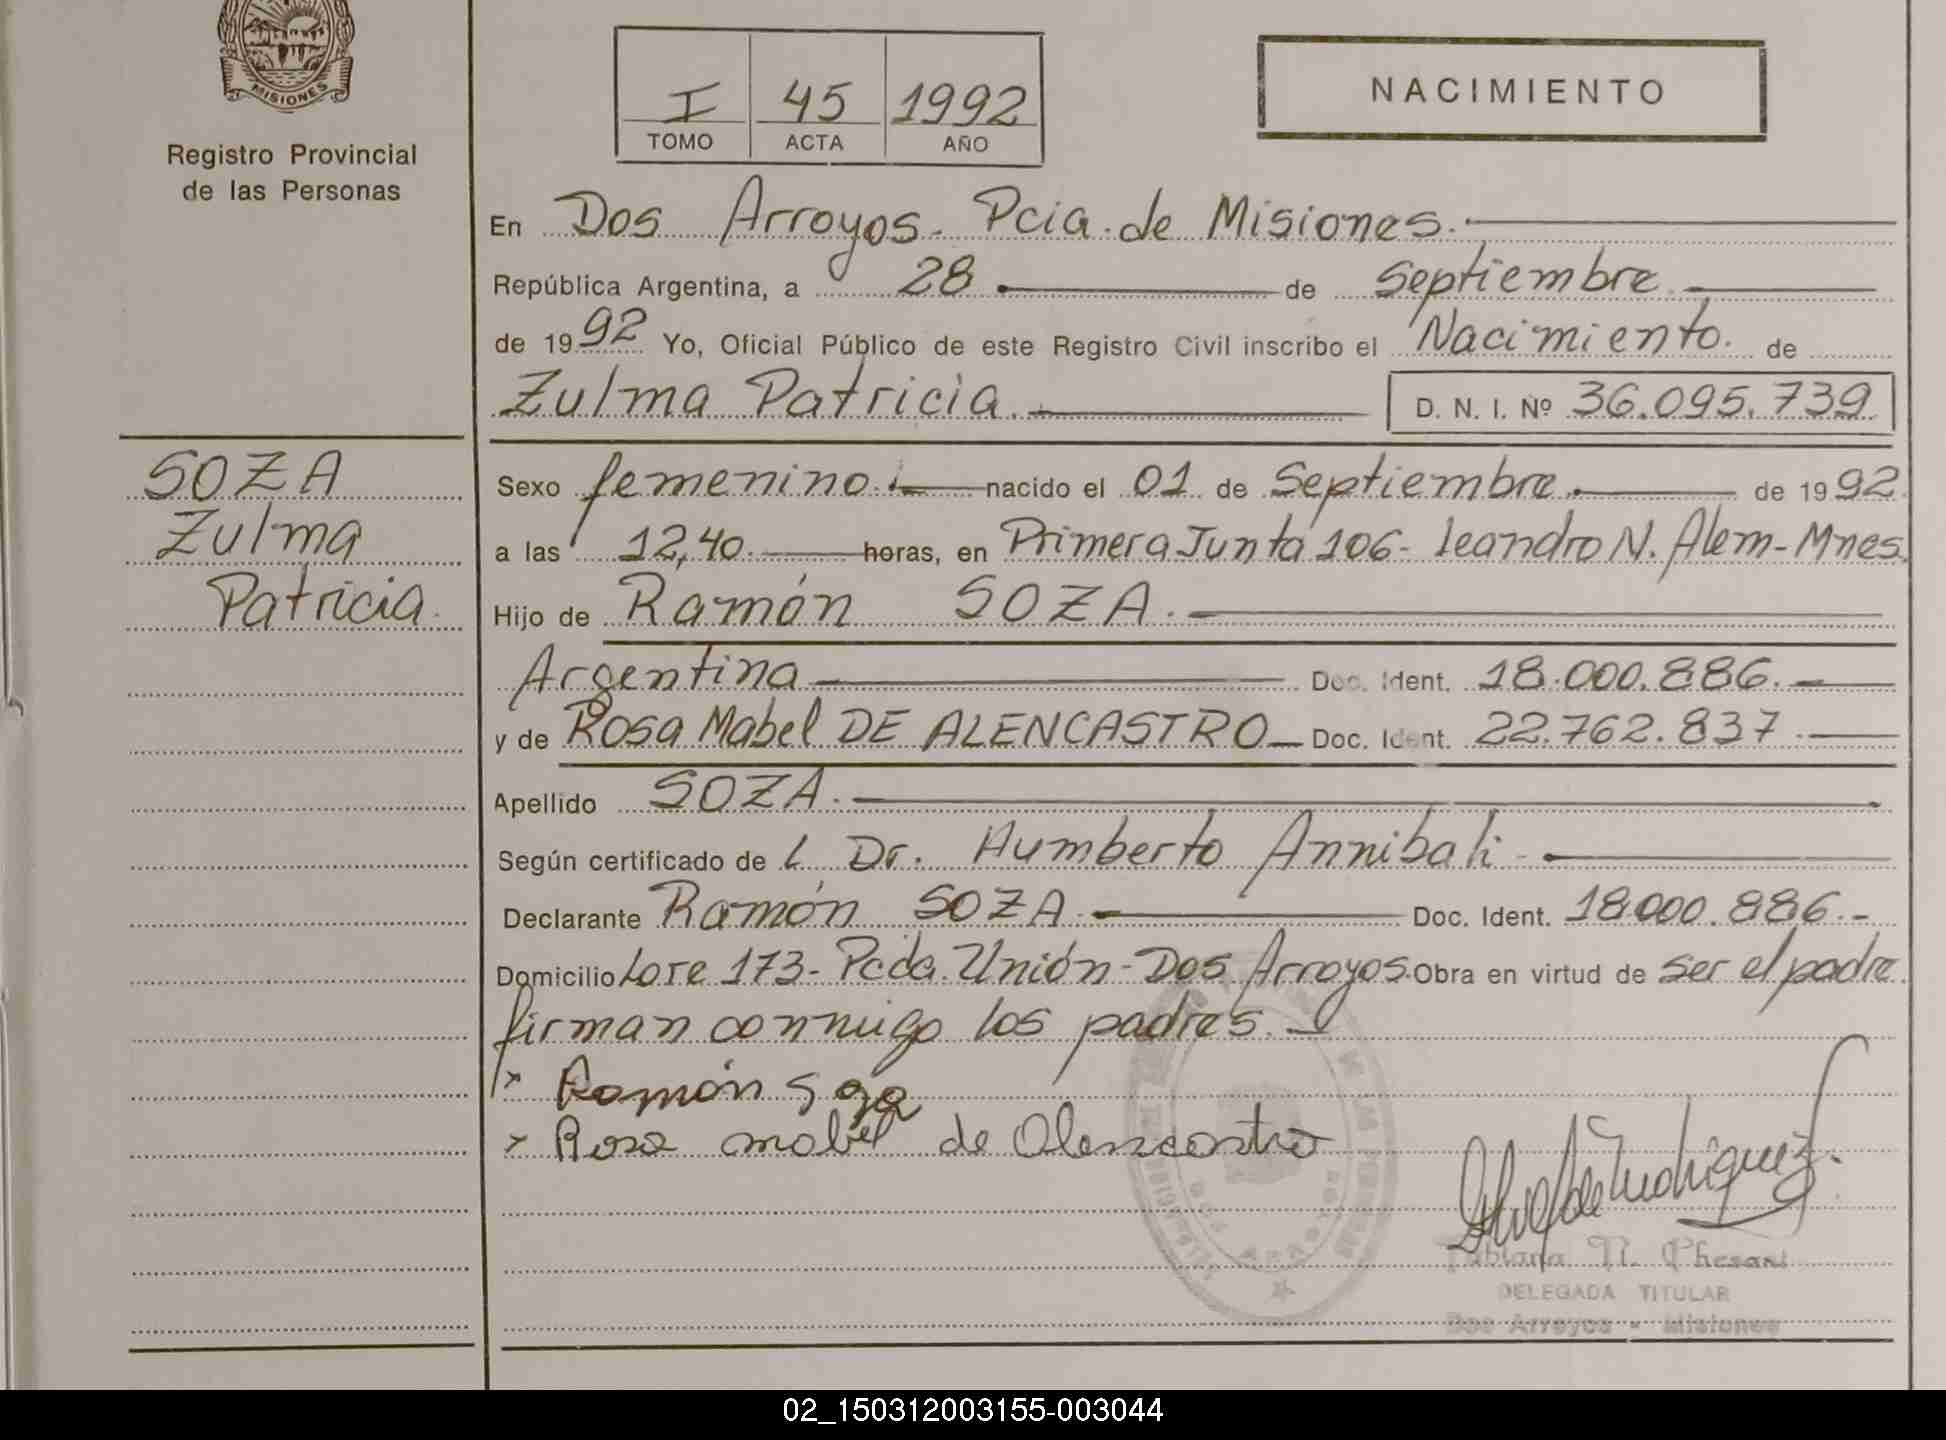 MISIONES
Registro Provincial
de las Personas
I 45 1992
TOMO ACTA AÑO
NACIMIENTO
En Dos Arroyos. Pcia. de Misiones.
República Argentina, a 28 de Septiembre
de 1992 Yo, Oficial Público de este Registro Civil inscribo el Nacimiento. de
Zulma Patricia. D. N. I. Nº 36.095.739
SOZA
Zulma
Patricia.
Sexo femenino. nacido el 01 de Septiembre. de 1992.
a las 12,40. horas, en Primera Junta 106- Leandro N. Alem-Mnes.
Hijo de Ramón SOZA.
Argentina Doc. Ident. 18.000.886.
y de Rosa Mabel DE ALENCASTRO Doc. Ident. 22.762.837.
Apellido SOZA.
Según certificado de l Dr. Humberto Annibali
Declarante Ramón SOZA. Doc. Ident. 18000.886.-
Domicilio Lote 173- Pcda. Unión- Dos Arroyos. Obra en virtud de ser el padre.
firman conmigo los padres.
Ramón Soza
Rosa mabel de Alencastro
DOS ARROYOS
Fabiana N. Chesani
DELEGADA TITULAR
Dos Arroyos - Misiones
02_150312003155-003044